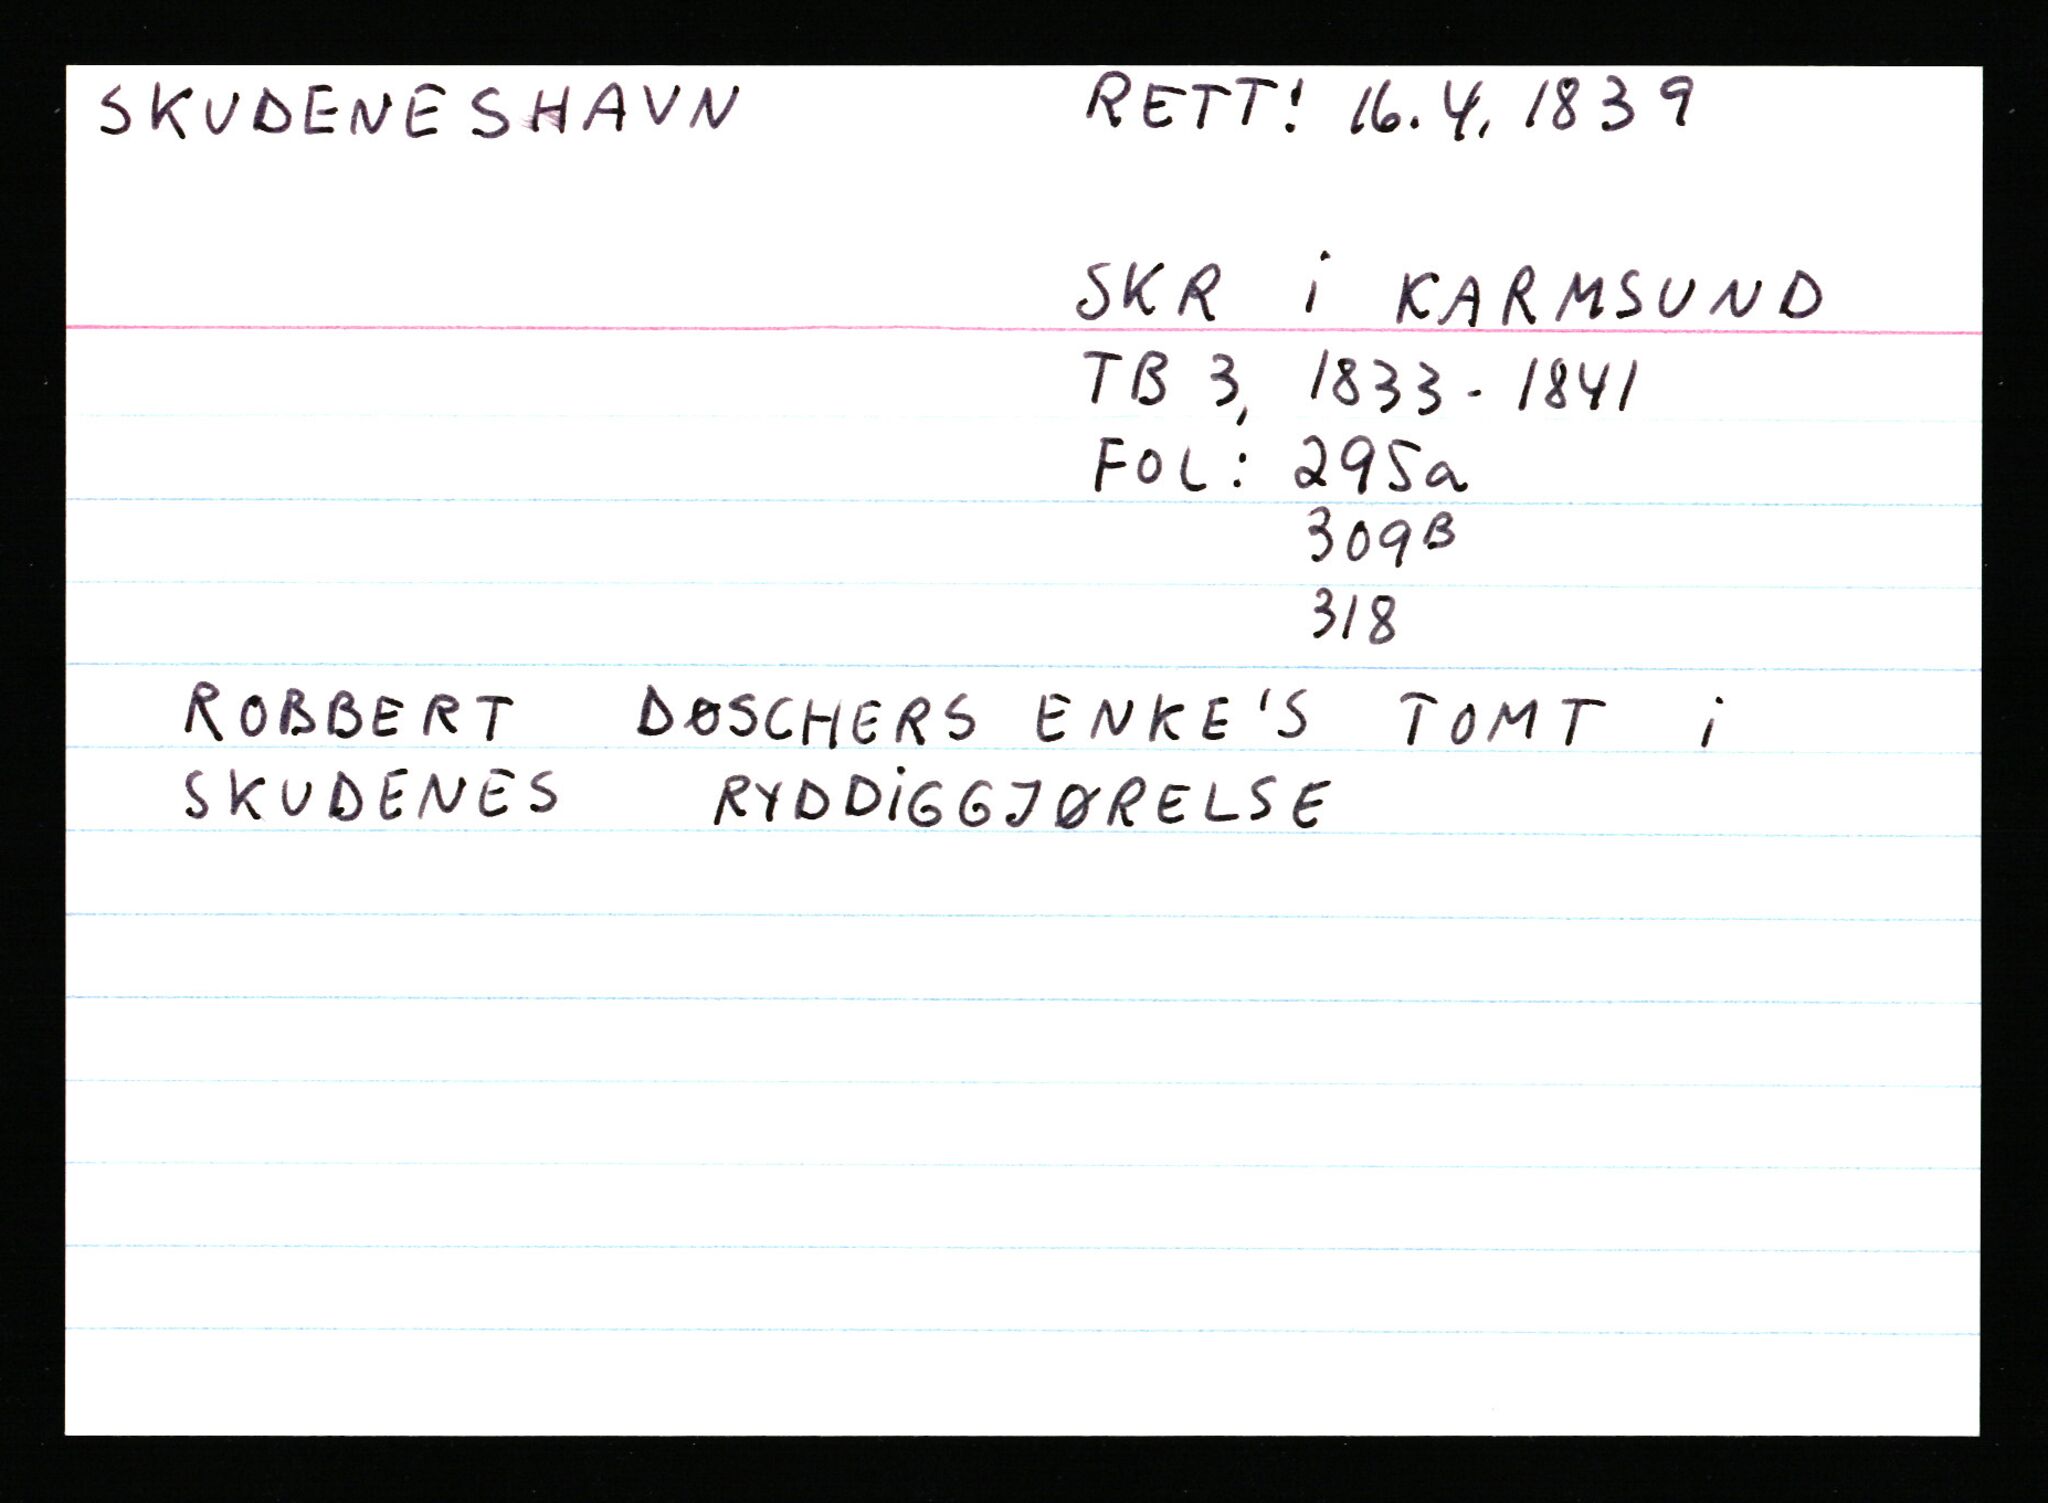 SKUDENESHAVN RETT! 16.4.1839
SKR i KARMSUND
TB 3, 1833-1841
FOL: 295a
309B
318
ROBBERT DØSCHERS ENKE'S TOMT i
SKUDENES RYDDiGGJØRELSE